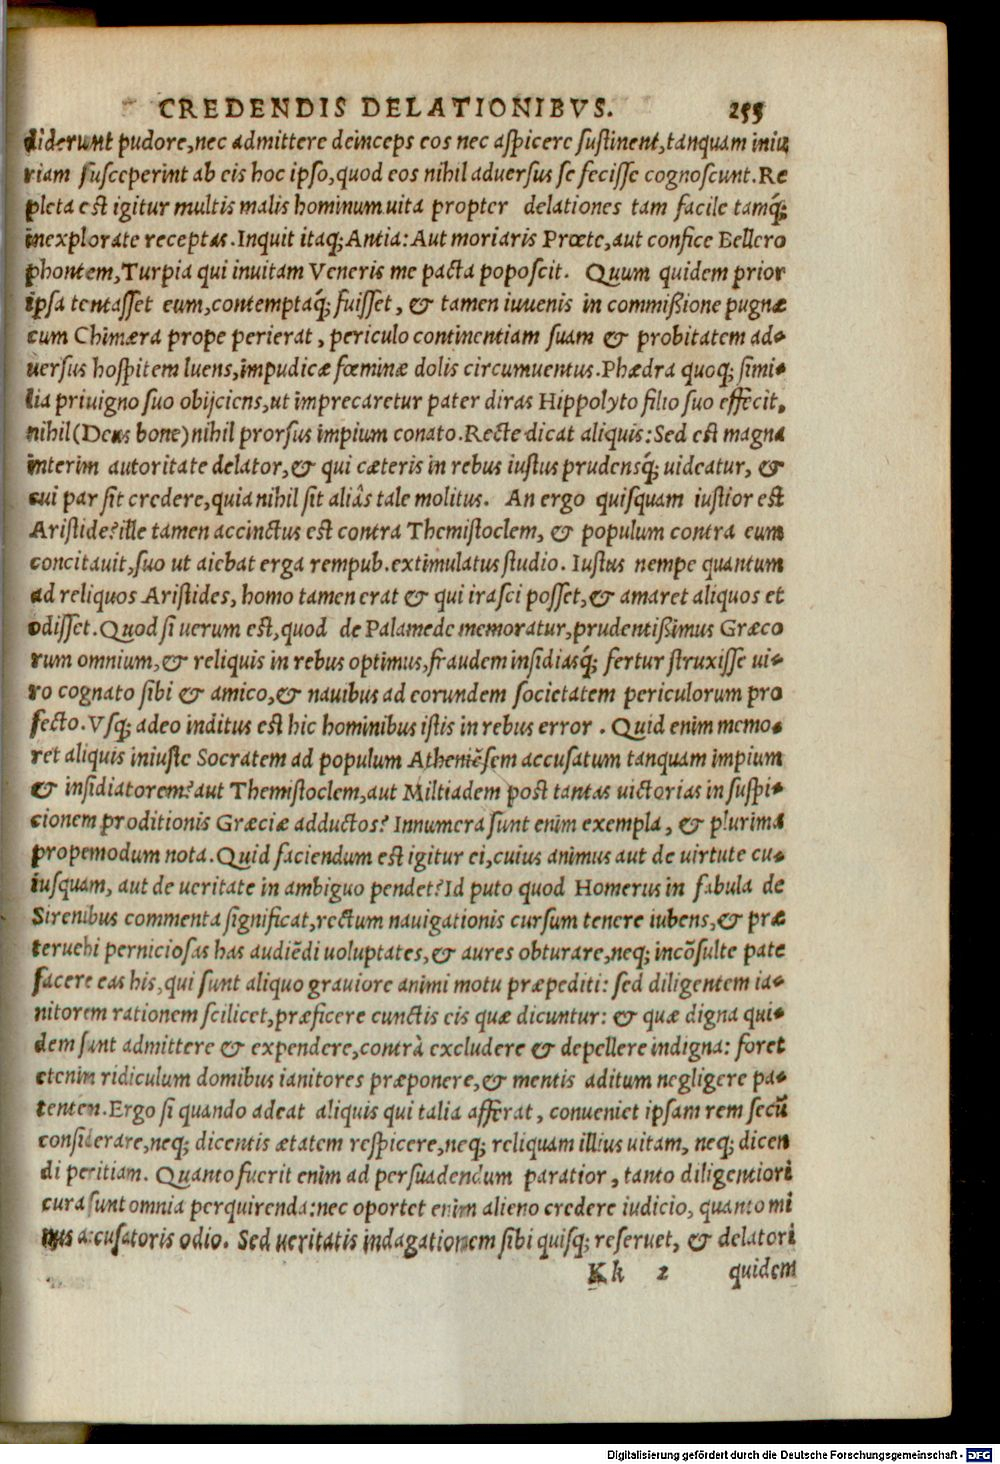 CREDENDIS DELATIONIBVS. 255
diderunt pudore, nec admittere deinceps eos nec aspicere sustinent, tanquam iniu
riam susceperint ab eis hoc ipso, quod eos nihil aduersus se fecisse cognoscunt. Re
pleta est igitur multis malis hominum uita propter delationes tam facile tamq́;
inexplorate receptas. Inquit itaq; Antia: Aut moriaris Prœte, aut confice Bellero
phontem, Turpia qui inuitam Veneris me pacta poposcit. Quum quidem prior
ipsa tentasset eum, contemptaq́; fuisset, & tamen iuuenis in commißione pugnæ
cum Chimæra prope perierat, periculo continentiam suam & probitatem ad-
uersus hospitem luens, impudicæ fœminæ dolis circumuentus. Phædra quoq; simi-
lia priuigno suo obijciens, ut imprecaretur pater diras Hippolyto filio suo effecit,
nihil (Deus bone) nihil prorsus impium conato. Recte dicat aliquis: Sed est magna
interim autoritate delator, & qui cæteris in rebus iustus prudensq́; uideatur, &
cui par sit credere, quia nihil sit aliâs tale molitus. An ergo quisquam iustior est
Aristide? ille tamen accinctus est contra Themistoclem, & populum contra eum
concitauit, suo ut aiebat erga rempub. extimulatus studio. Iustus nempe quantum
ad reliquos Aristides, homo tamen erat & qui irasci posset, & amaret aliquos et
odisset. Quod si uerum est, quod de Palamede memoratur, prudentißimus Græco
rum omnium, & reliquis in rebus optimus, fraudem insidiasq́; fertur struxisse ui-
ro cognato sibi & amico, & nauibus ad eorundem societatem periculorum pro
fecto. Vsq; adeo inditus est hic hominibus istis in rebus error. Quid enim memo-
ret aliquis iniuste Socratem ad populum Atheniẽsem accusatum tanquam impium
& insidiatorem? aut Themistoclem, aut Miltiadem post tantas uictorias in suspi-
cionem proditionis Græciæ adductos? Innumera sunt enim exempla, & plurima
propemodum nota. Quid faciendum est igitur ei, cuius animus aut de uirtute cu-
iusquam, aut de ueritate in ambiguo pendet? Id puto quod Homerus in fabula de
Sirenibus commenta significat, rectum nauigationis cursum tenere iubens, & præ
teruehi perniciosas has audiẽdi uoluptates, & aures obturare, neq; incõsulte pate
facere eas his, qui sunt aliquo grauiore animi motu præpediti: sed diligentem ia-
nitorem rationem scilicet, præficere cunctis eis quæ dicuntur: & quæ digna qui-
dem sunt admittere & expendere, contrà excludere & depellere indigna: foret
etenim ridiculum domibus ianitores præponere, & mentis aditum negligere pa-
tenten. Ergo si quando adeat aliquis qui talia afferat, conueniet ipsam rem secũ
considerare, neq; dicentis ætatem respicere, neq; reliquam illius uitam, neq; dicen
di peritiam. Quanto fuerit enim ad persuadendum paratior, tanto diligentiori
cura sunt omnia perquirenda: nec oportet enim alieno credere iudicio, quanto mi
nus accusatoris odio. Sed ueritatis indagationem sibi quisq; reseruet, & delatori
Kk 2 quidem
Digitalisierung gefördert durch die Deutsche Forschungsgemeinschaft - DFG